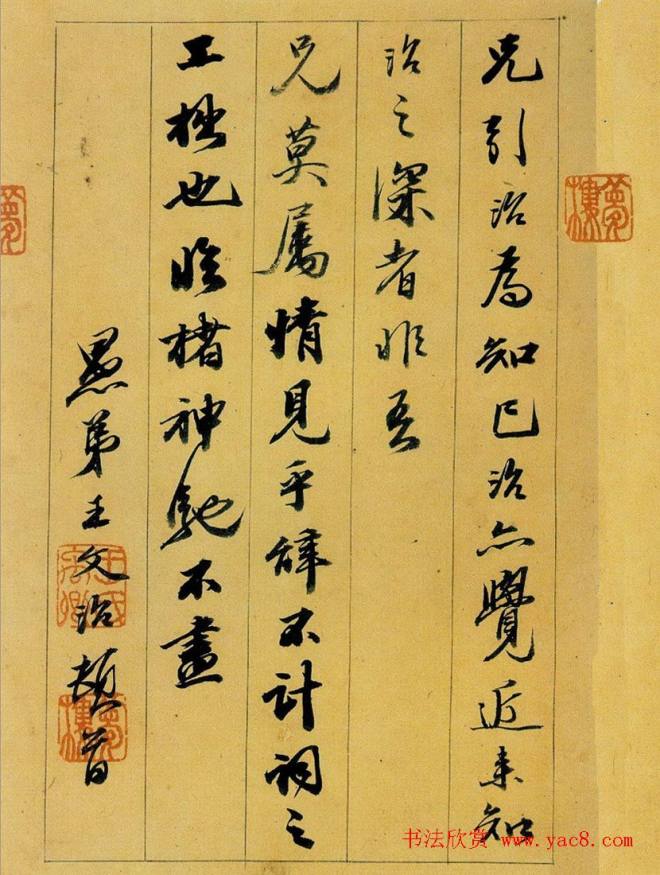 兄引治為知己治亦覺近來知
治之深者非吾
兄莫屬情見乎辭不計詞之
工拙也臨楮神馳不盡
愚弟王文治頓首
夢樓
夢樓
书法欣赏 www.yac8.com